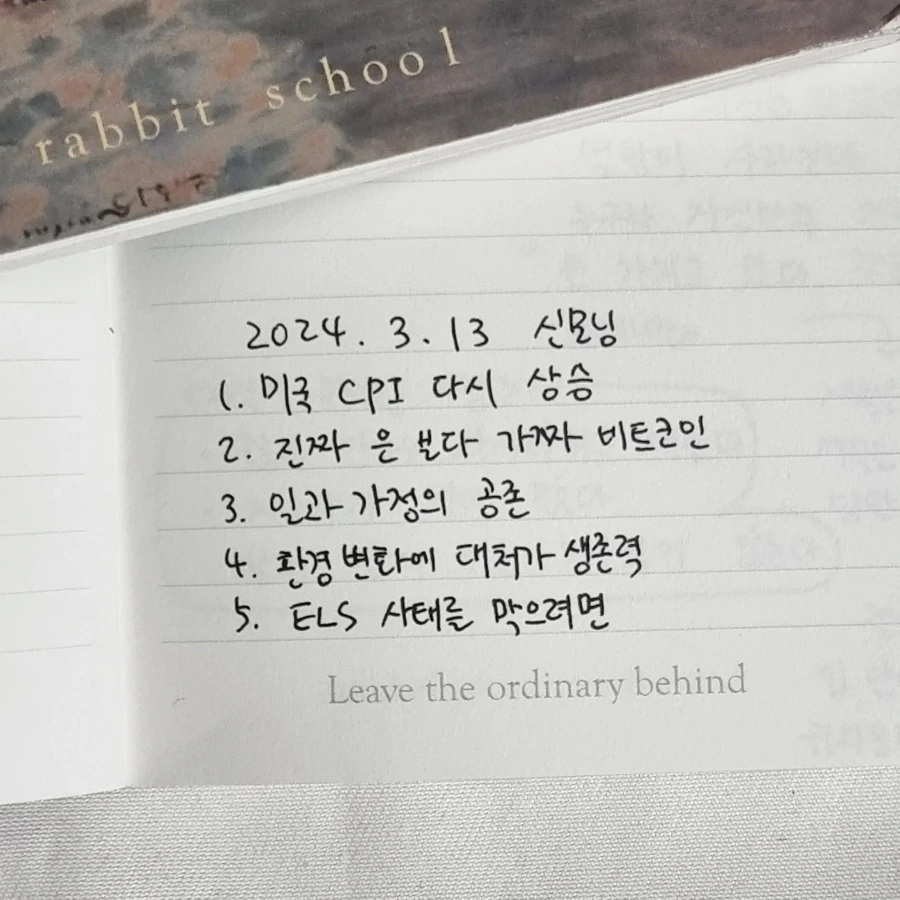 rabbit school
2024. 3. 13 신모닝
1. 미국 CPI 다시 상승
2. 진짜 은 보다 가짜 비트코인
3. 일과 가정의 공존
4. 환경변화에 대처가 생존력
5. ELS 사태를 막으려면
Leave the ordinary behind